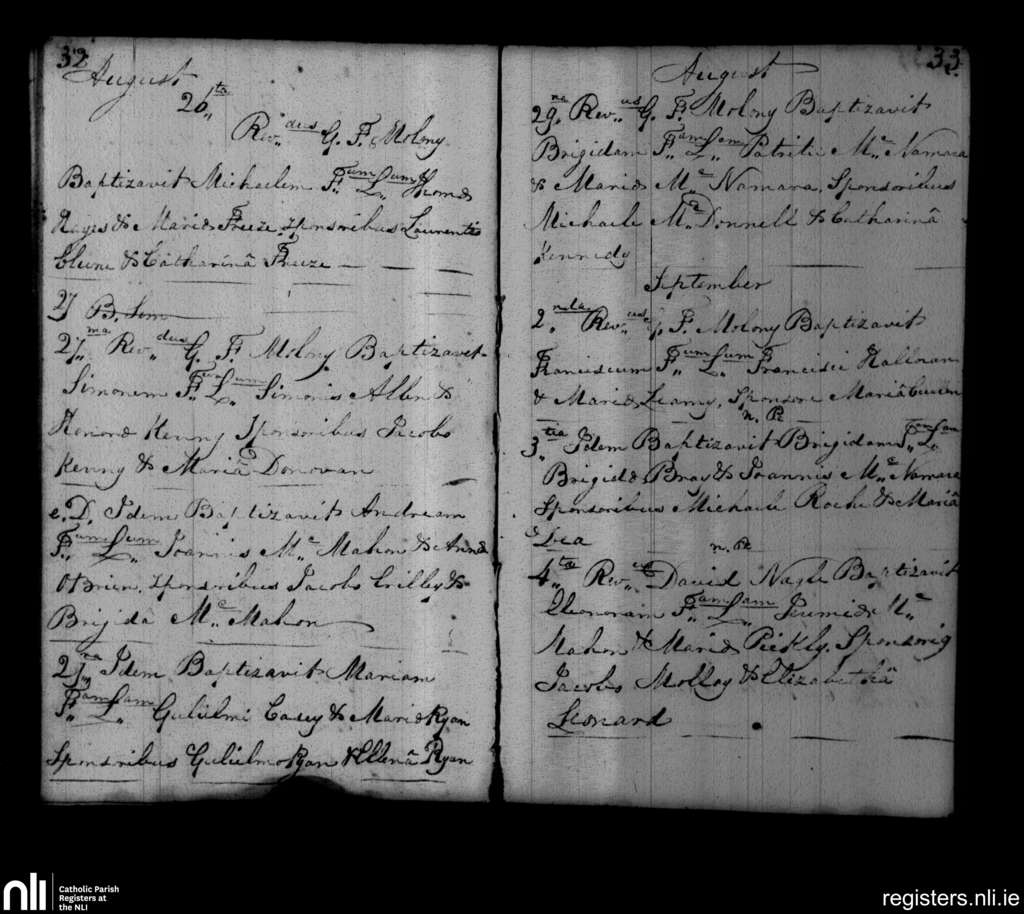 32
August
26,,ta
Rev,,dus G. F. Molony
Baptizavit Michaelem F,,um L,,um Thomæ
Hayes & Mariæ Freeze, sponsoribus Laurentio
Clune & Catharinâ Freeze
27 B. Sim
27,,ma Rev,,dus G. F. Molony Baptizavit
Simonem F,,um L,,um Simonis Allen &
Honoræ Kenny Sponsoribus Jacobo
Kenny & Mariâ Donovan
e. D. Idem Baptizavit Andream
F,,um L,,um Joannis Mc,, Mahon & Annæ
OBrien, sponsoribus Jacobo Crilly &
Brigida Mc,, Mahon
29,,na Idem Baptizavit Mariam
F,,am L,,am Gulielmi Casey & Mariæ Ryan
Sponsoribus Gulielmo Ryan & Ellenâ Ryan
33
August
29,,na Rev,,us G. F. Molony Baptizavit
Brigidam F,,am L,,am Patritii Mc,, Namara
& Mariæ Mc,, Namara, Sponsoribus
Michaele Mc,, Donnell & Catharinâ
Kennedy
September
2,,nda Rev,,us G. F. Molony Baptizavit
Franciscum F,,um L,,um Francisci
& Mariæ Leamy, Sponsore Mariâ Cullen
n. Pt
3,,tia Idem Baptizavit Brigidam F,,am L,,am
Brigidæ Bray & Joannis Mc,, Namara
Sponsoribus Michaele Roche & Mariâ
Lea
n. Pt
4,,ta Rev,, David Nagle Baptizavit
Eleonoram F,,am L,,am Jeremiæ Mc
Mahon & Mariæ Pickly. Sponsorig
Jacobo Molloy & Elizabethâ
Leonard
nli
Catholic Parish
Registers at
the NLI
registers.nli.ie